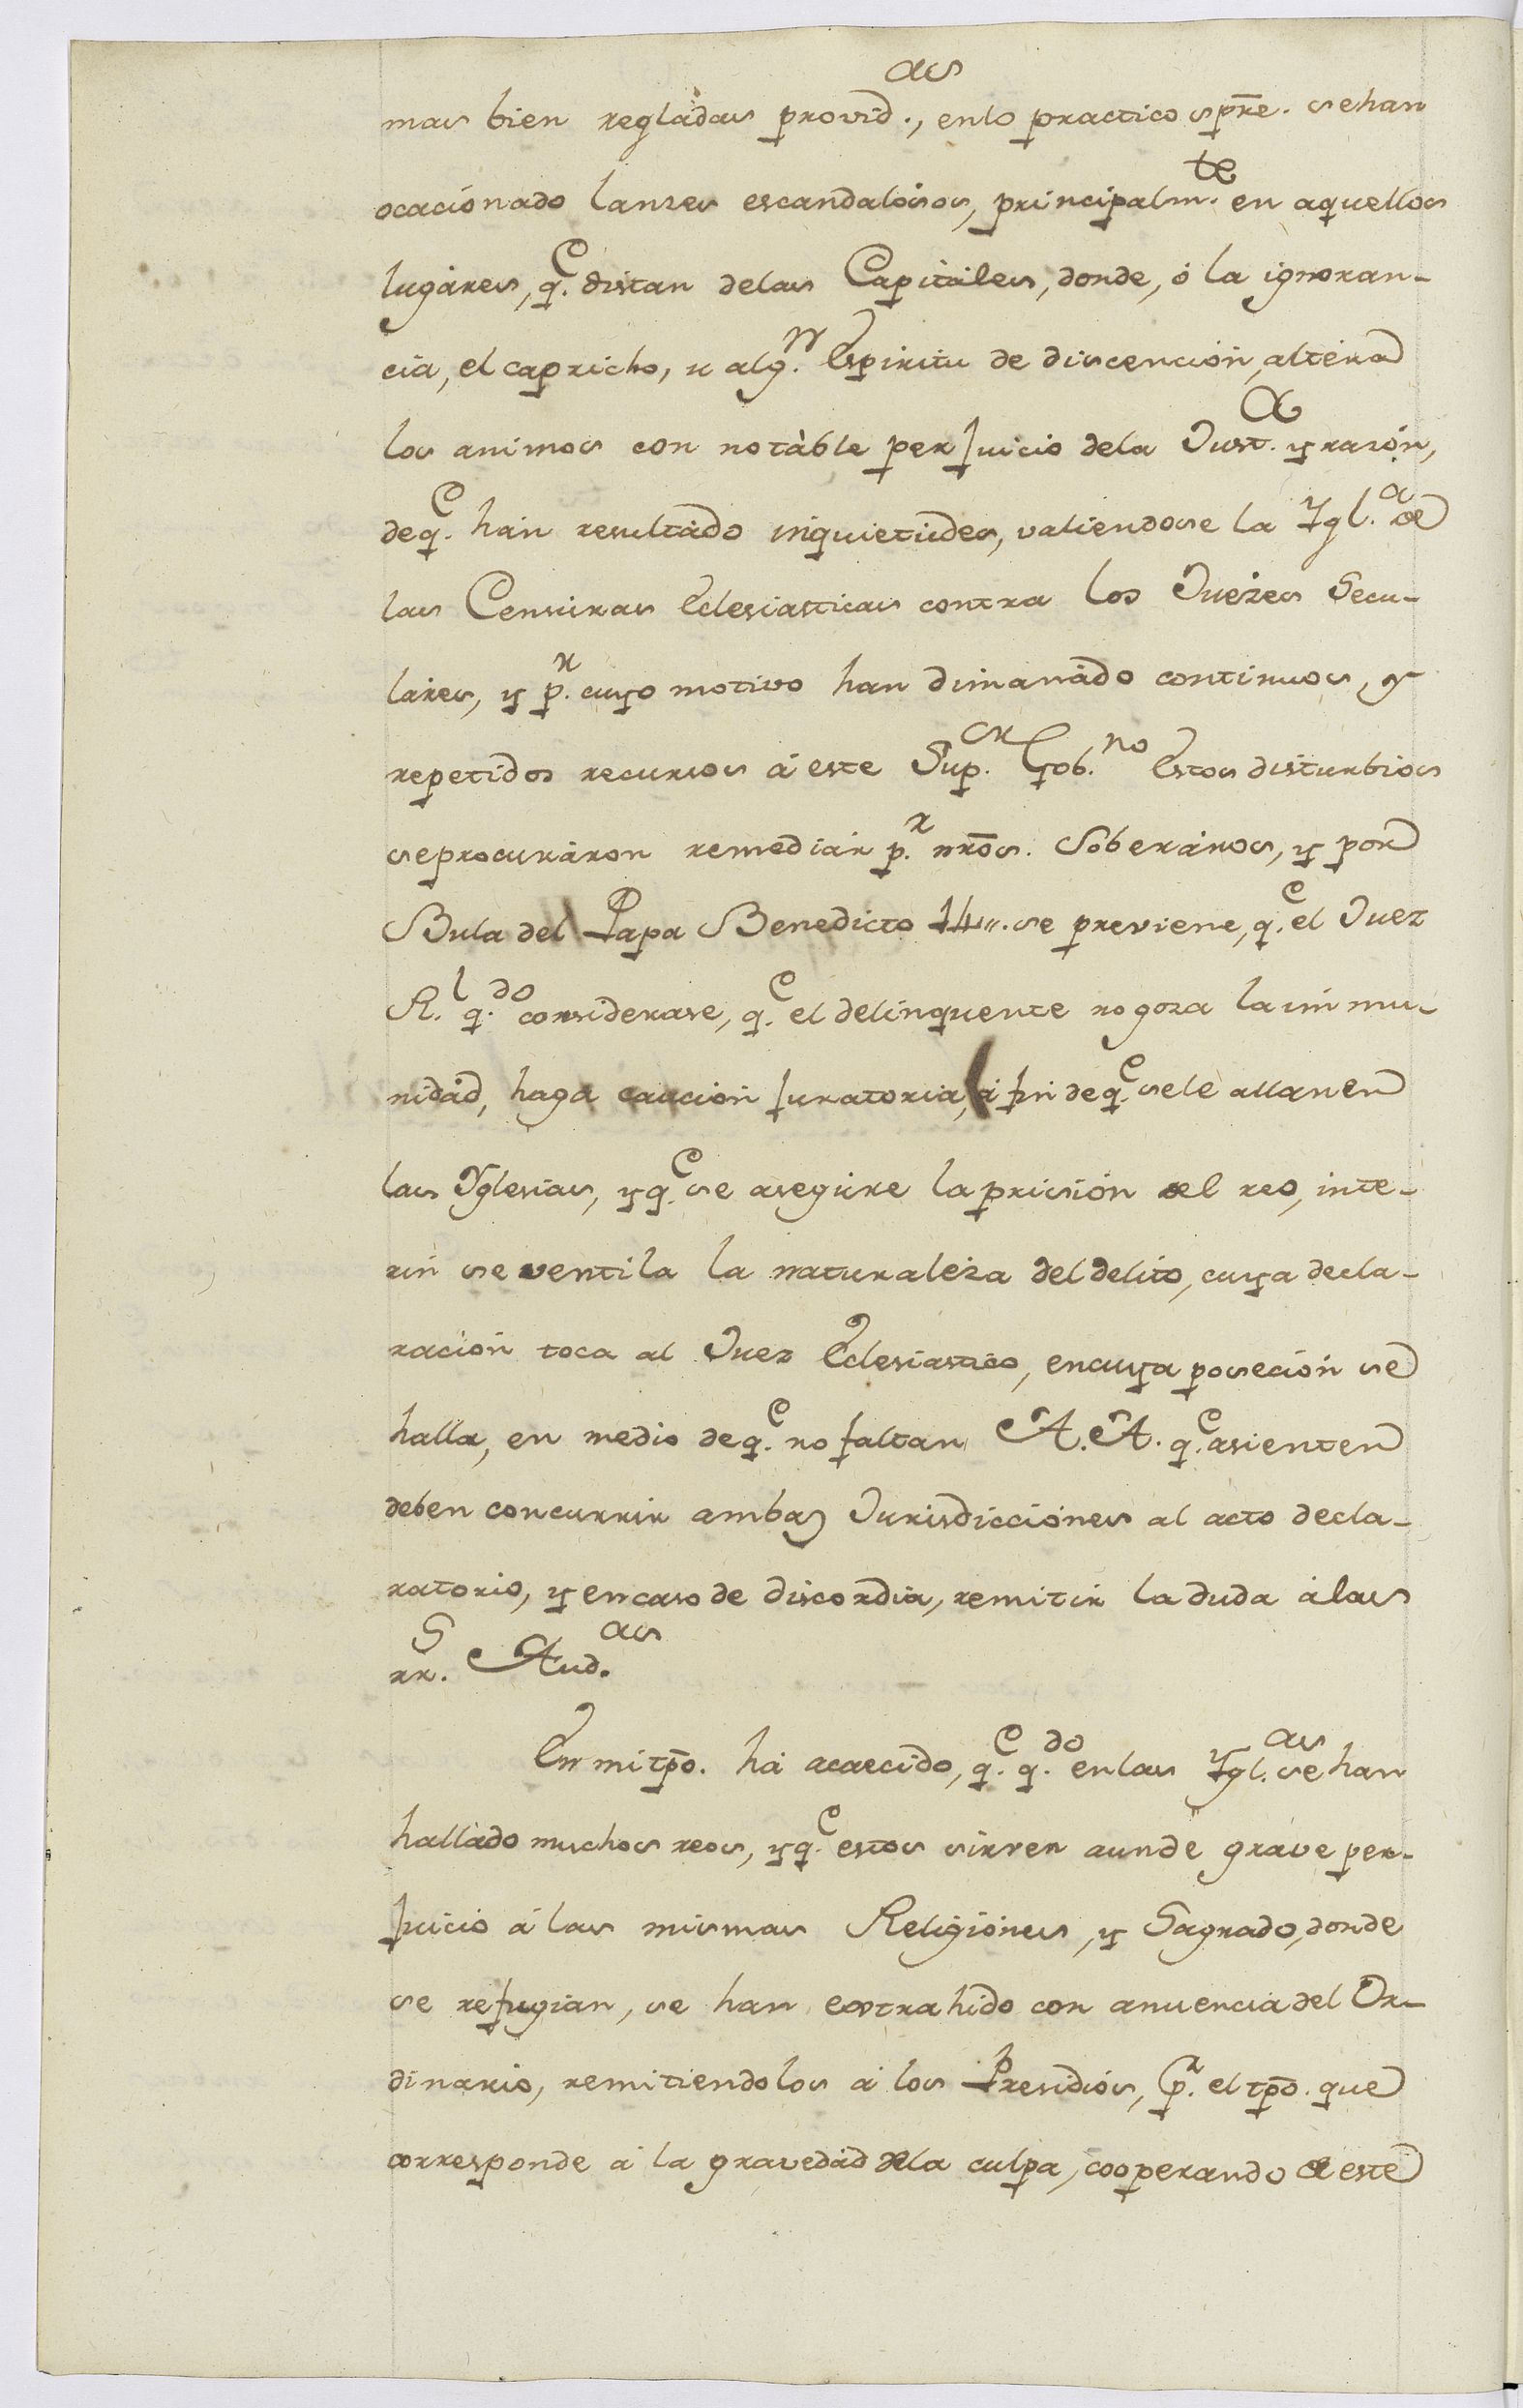 mas bien regladas provid.as, enlo practico spre. sehan
ocacionado lanzes escandalosos, principalm.te en aquellos
lugáres, q.e distan delas Capitáles, donde, ó la ignoran-
cia, el capricho, u alg.n Espiritu de discención, altéra
los animos con notàble perjuicio dela Just.a y razón,
deq.e hán resultádo inquietúdes, valiendose la Ygl.a de
las Censúras Eclesiasticas contra los Juézes Secu-
láres, y p.r cuyo motivo han dimanádo continuos, y
repetidos recursos á este Sup.or Gob.no Estos disturbios
seprocuráron remediár p.r nros. Soberános, y por
Bula del Papa Benedicto 14,, se previene, q.e el Juez
R.l q.do considerase, q.e el delinquente no goza la inmu-
nidád, haga caución juratoria, á fin deq.e sele allanen
las Yglesias, y q.e se asegúre la prisión del reo, inte-
rin se ventila la naturaléza del delito, cuya decla-
ración toca al Juez Eclesiastico, encuya poseción se
halla, en medio deq.e no faltan A.A. q.e asienten
deben concurrir ambas Jurisdicciónes al acto decla-
ratorio, y encaso de discordia, remitir la duda álas
rr.s Aud.as
En mi tpo. há acaecido, q.e q.do enlas Ygl.as se han
hallàdo muchos reos, y q.e estos sirven aunde grave per-
juicio á las mismas Religiónes, y Sagrado, donde
se refugian, se han extrahido con anuencia del Or-
dinario, remitiendolos á los Presidiós, p.r el tpo. que
corresponde á la gravedád dela culpa, cooperando á este